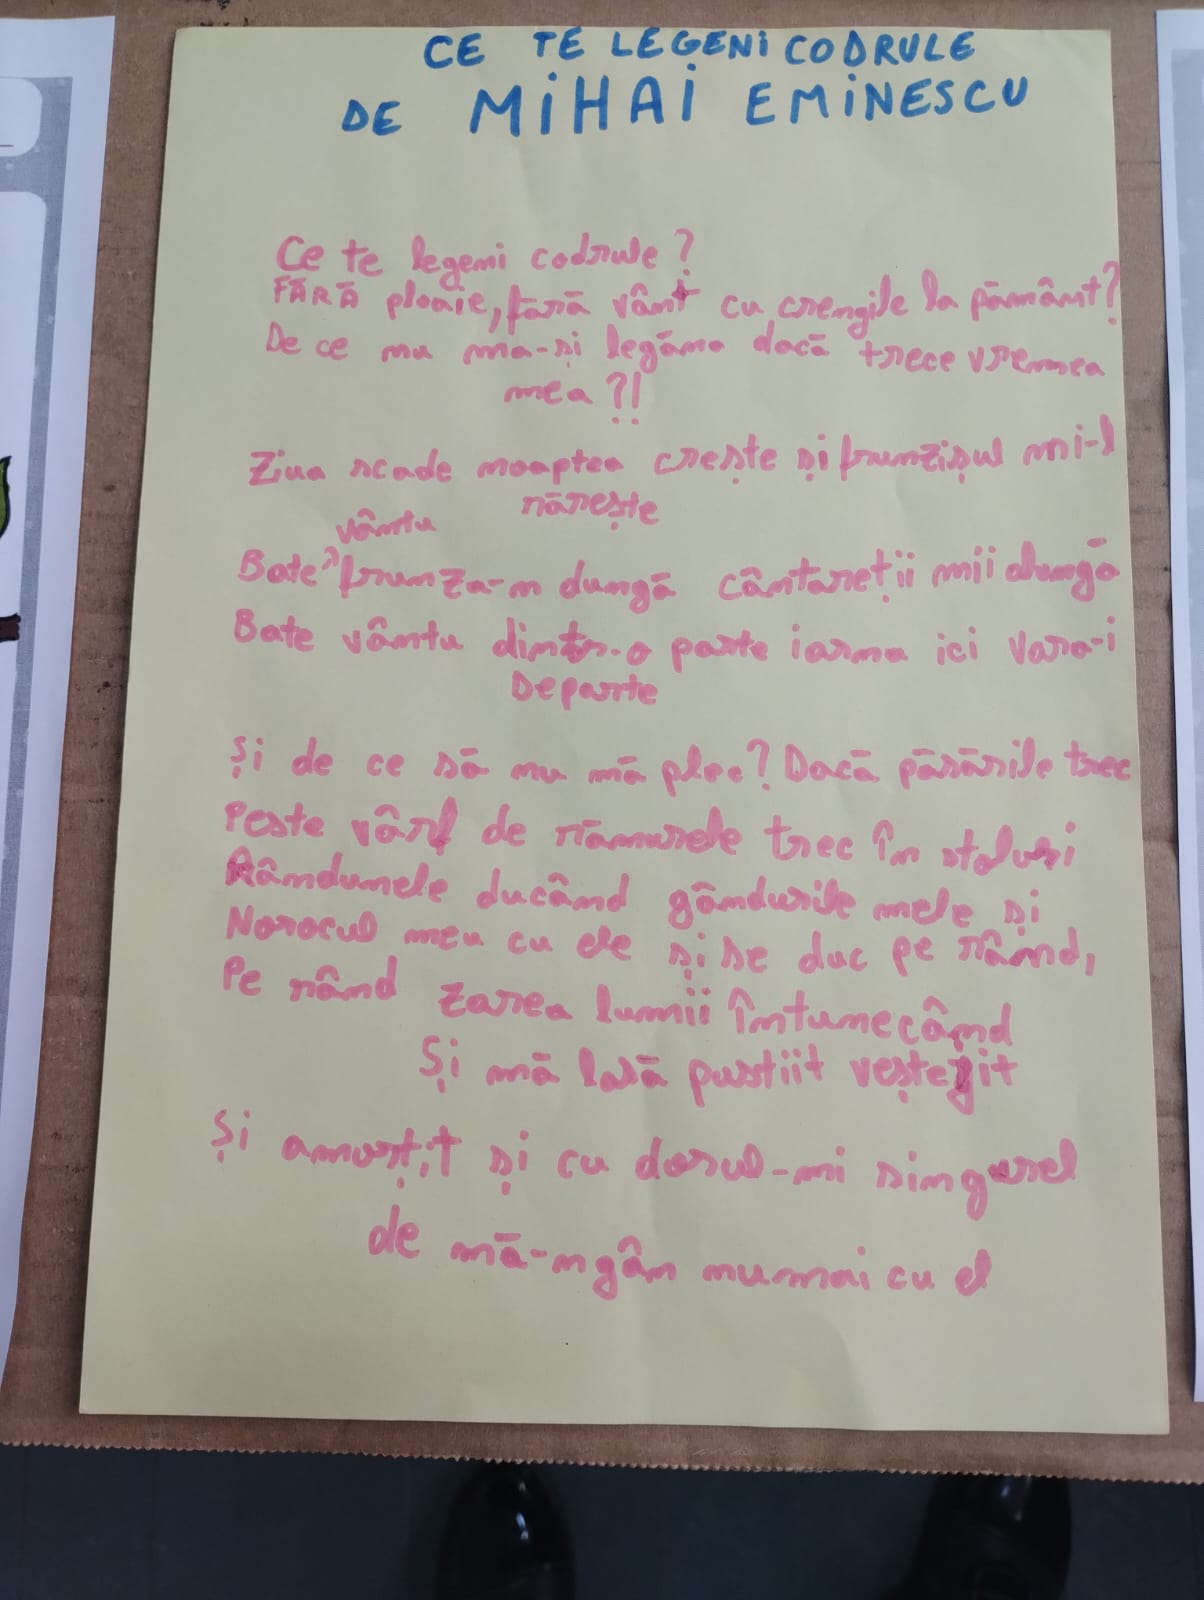 CE TE LEGENI CODRULE
DE MIHAI EMINESCU
Ce te legeni codrule?
FĂRĂ ploaie, fără vânt cu crengile la pământ?
De ce nu ma-și legăna dacă trece vremea
mea ?!
Ziua scade noaptea crește și frunzișul mi-l
rărește
vântu
Bate^frunza-n dungă cântareții mii alungă
Bate vântu dintr-o parte iarna ici vara-i
Departe
și de ce să nu mă plec? Dacă păsările trec
Peste vârf de rămurele trec în stoluri
Rândunele ducând gândurile mele și
Norocul meu cu ele și se duc pe rând,
Pe rând zarea lumii întunecând
Și mă lasă pustiit veștezit
Și amorțit și cu dorul-mi singurel
de mă-ngân numai cu el